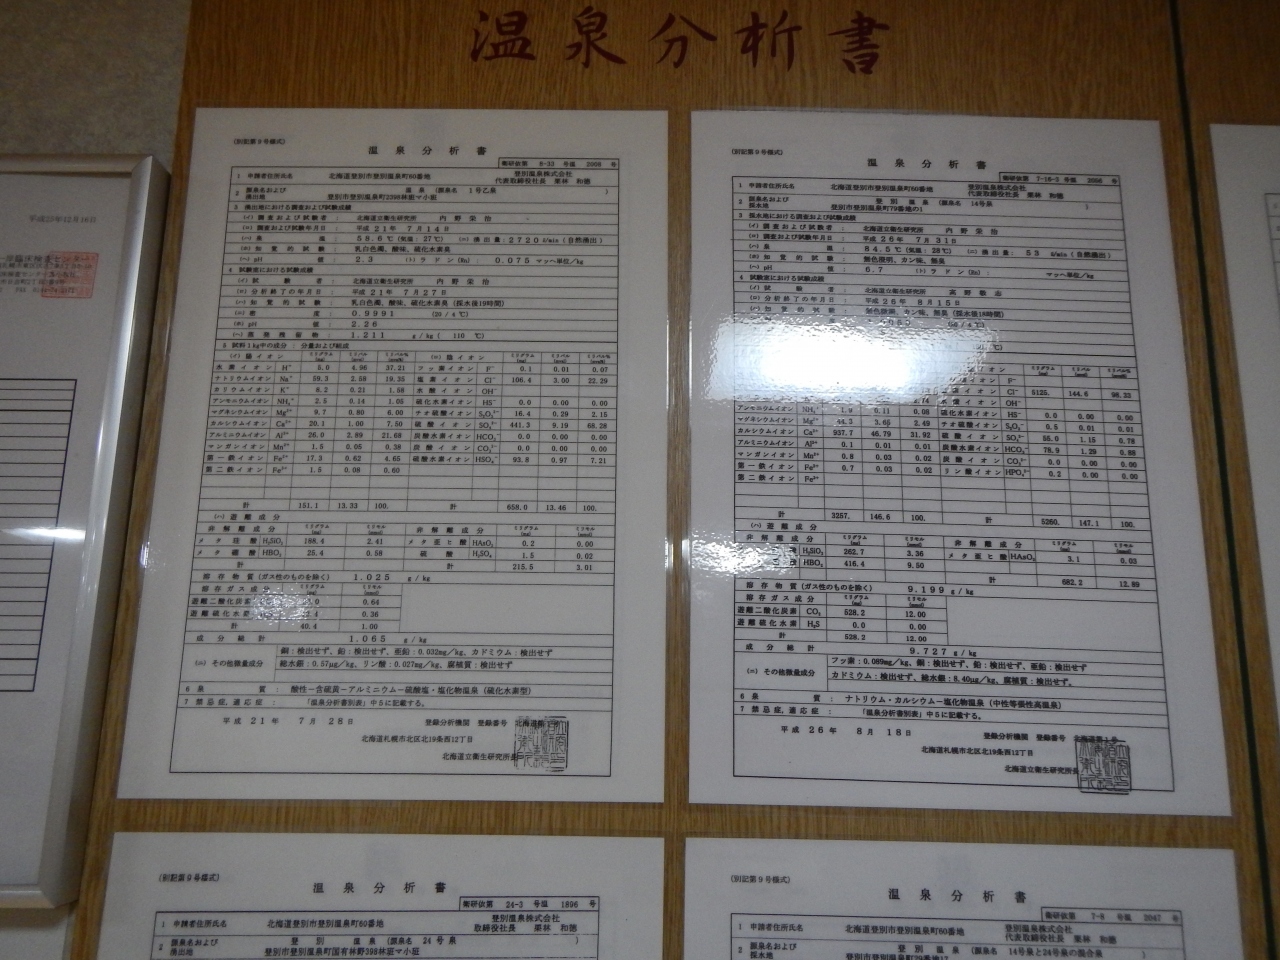 温泉分析書
平成23年12月16日
(別記第9号様式)
温泉分析書
衛研依第 8-33 号温 2008 号
1 申請者住所氏名 北海道登別市登別温泉町60番地 登別温泉株式会社
代表取締役社長 栗林 和徳
2 源泉名および 温泉 (源泉名 1号乙泉 )
湧出地 登別市登別温泉町2398林班マ小班
3 湧出地における調査および試験成績
(イ) 調査および試験者 : 北海道立衛生研究所 内野 栄治
(ロ) 調査および試験年月日 : 平成 21年 7月14日
(ハ) 泉温 : 58.6℃ (気温: 27℃) (ニ) 湧出量: 2720 ℓ/min (自然湧出)
(ホ) 知覚的試験 : 乳白色濁、酸味、硫化水素臭
(ヘ) pH値 : 2.3 (ト) ラドン(Rn) : 0.075 マッヘ単位/kg
4 試験室における試験成績
(イ) 試験者 : 北海道立衛生研究所 内野 栄治
(ロ) 分析終了の年月日 : 平成 21年 7月27日
(ハ) 知覚的試験 : 乳白色濁、酸味、硫化水素臭 (採水後19時間)
(ニ) 密度 : 0.9991 (20/4℃)
(ホ) pH値 : 2.26
(ヘ) 蒸発残留物 : 1.211 g/kg ( 110 ℃)
5 試料1kg中の成分:分量および組成
(イ) 陽イオン ミリグラム ミリバル ミリバル% (ロ) 陰イオン ミリグラム ミリバル ミリバル%
水素イオン H⁺ 5.0 4.96 37.21 フッ素イオン F⁻ 0.1 0.01 0.07
ナトリウムイオン Na⁺ 59.3 2.58 19.35 塩素イオン Cl⁻ 106.4 3.00 22.29
カリウムイオン K⁺ 8.2 0.21 1.58 水酸イオン OH⁻
アンモニウムイオン NH₄⁺ 2.5 0.14 1.05 硫化水素イオン HS⁻ 0.0 0.00 0.00
マグネシウムイオン Mg²⁺ 9.7 0.80 6.00 チオ硫酸イオン S₂O₃²⁻ 16.4 0.29 2.15
カルシウムイオン Ca²⁺ 20.1 1.00 7.50 硫酸イオン SO₄²⁻ 441.3 9.19 68.28
アルミニウムイオン Al³⁺ 26.0 2.89 21.68 炭酸水素イオン HCO₃⁻ 0.0 0.00 0.00
マンガンイオン Mn²⁺ 1.5 0.05 0.38 炭酸イオン CO₃²⁻ 0.0 0.00 0.00
第一鉄イオン Fe²⁺ 17.3 0.62 4.65 硫酸水素イオン HSO₄⁻ 93.8 0.97 7.21
第二鉄イオン Fe³⁺ 1.5 0.08 0.60
計 151.1 13.33 100. 計 658.0 13.46 100.
(ハ) 遊離成分
非解離成分 ミリグラム ミリモル 非解離成分 ミリグラム ミリモル
メタ珪酸 H₂SiO₃ 188.4 2.41 メタ亜ヒ酸 HAsO₂ 0.2 0.00
メタ硼酸 HBO₂ 25.4 0.58 硫酸 H₂SO₄ 1.5 0.02
計 215.5 3.01
溶存物質(ガス性のものを除く) 1.025 g/kg
溶存ガス成分 ミリグラム ミリモル
遊離二酸化炭素 0.64
遊離硫化水素 0.36
計 40.4 1.00
成分総計 1.065 g/kg
(ニ) その他微量成分 銅:検出せず、鉛:検出せず、亜鉛:0.032mg/kg、カドミウム:検出せず
総水銀:0.57μg/kg、リン酸:0.027mg/kg、腐植質:検出せず
6 泉質 : 酸性-含硫黄-アルミニウム-硫酸塩・塩化物温泉(硫化水素型)
7 禁忌症,適応症 : 「温泉分析書別表」中5に記載する。
平成 21年 7月 28日 登録分析機関 登録番号 北海道第1号
北海道札幌市北区北19条西12丁目
北海道立衛生研究所長
(別記第9号様式)
温泉分析書
衛研依第 7-18-3 号温 2056 号
1 申請者住所氏名 北海道登別市登別温泉町60番地 登別温泉株式会社
代表取締役社長 栗林 和徳
2 源泉名および 登別 温泉 (源泉名 14号泉 )
採水地 登別市登別温泉町79番地の1
3 採水地における調査および試験成績
(イ) 調査および試験者 : 北海道立衛生研究所 内野 栄治
(ロ) 調査および試験年月日 : 平成 26年 7月31日
(ハ) 泉温 : 84.5℃ (気温: 28℃) (ニ) 湧出量: 53 ℓ/min (自然湧出)
(ホ) 知覚的試験 : 無色澄明、カン味、無臭
(ヘ) pH値 : 6.7 (ト) ラドン(Rn) : マッヘ単位/kg
4 試験室における試験成績
(イ) 試験者 : 北海道立衛生研究所 高野 敬志
(ロ) 分析終了の年月日 : 平成 26年 8月15日
(ハ) 知覚的試験 カン味、無臭 (採水後18時間)
(20/4℃)
F⁻
Cl⁻ 5125. 144.6 98.33
水酸イオン OH⁻
アンモニウムイオン NH₄⁺ 1.9 0.11 0.08 硫化水素イオン HS⁻ 0.0 0.00 0.00
マグネシウムイオン Mg²⁺ 44.3 3.65 2.49 チオ硫酸イオン S₂O₃²⁻ 0.5 0.01 0.01
カルシウムイオン Ca²⁺ 937.7 46.79 31.92 硫酸イオン SO₄²⁻ 55.0 1.15 0.78
アルミニウムイオン Al³⁺ 0.1 0.01 0.01 炭酸水素イオン HCO₃⁻ 78.9 1.29 0.88
マンガンイオン Mn²⁺ 0.8 0.03 0.02 炭酸イオン CO₃²⁻ 0.0 0.00 0.00
第一鉄イオン Fe²⁺ 0.7 0.03 0.02 リン酸イオン HPO₄²⁻ 0.2 0.00 0.00
第二鉄イオン Fe³⁺
計 3257. 146.6 100. 計 5260. 147.1 100.
(ハ) 遊離成分
非解離成分 ミリグラム ミリモル 非解離成分 ミリグラム ミリモル
H₂SiO₃ 262.7 3.36 メタ亜ヒ酸 HAsO₂ 3.1 0.03
HBO₂ 416.4 9.50
計 682.2 12.89
溶存物質(ガス性のものを除く) 9.199 g/kg
溶存ガス成分 ミリグラム ミリモル
遊離二酸化炭素 CO₂ 528.2 12.00
遊離硫化水素 H₂S 0.0 0.00
計 528.2 12.00
成分総計 9.727 g/kg
(ニ) その他微量成分 フッ素:0.089mg/kg、銅:検出せず、鉛:検出せず、亜鉛:検出せず
カドミウム:検出せず、総水銀:8.40μg/kg、腐植質:検出せず。
6 泉質 : ナトリウム・カルシウム-塩化物温泉(中性等張性高温泉)
7 禁忌症,適応症 : 「温泉分析書別表」中5に記載する。
平成 26年 8月 18日 登録分析機関 登録番号 北海道第1号
北海道札幌市北区北19条西12丁目
北海道立衛生研究所長
(別記第9号様式)
温泉分析書
衛研依第 24-3 号温 1896 号
1 申請者住所氏名 北海道登別市登別温泉町60番地 登別温泉株式会社
取締役社長 栗林 和徳
2 源泉名および 登別 温泉 (源泉名 24号泉 )
湧出地 登別市登別温泉町国有林野398林班マ小班
(別記第9号様式)
温泉分析書
衛研依第 7-8 号温 2047 号
1 申請者住所氏名 北海道登別市登別温泉町60番地 登別温泉株式会社
代表取締役社長 栗林 和徳
2 源泉名および 登別 温泉 (源泉名 14号泉と24号泉の混合泉 )
採水地